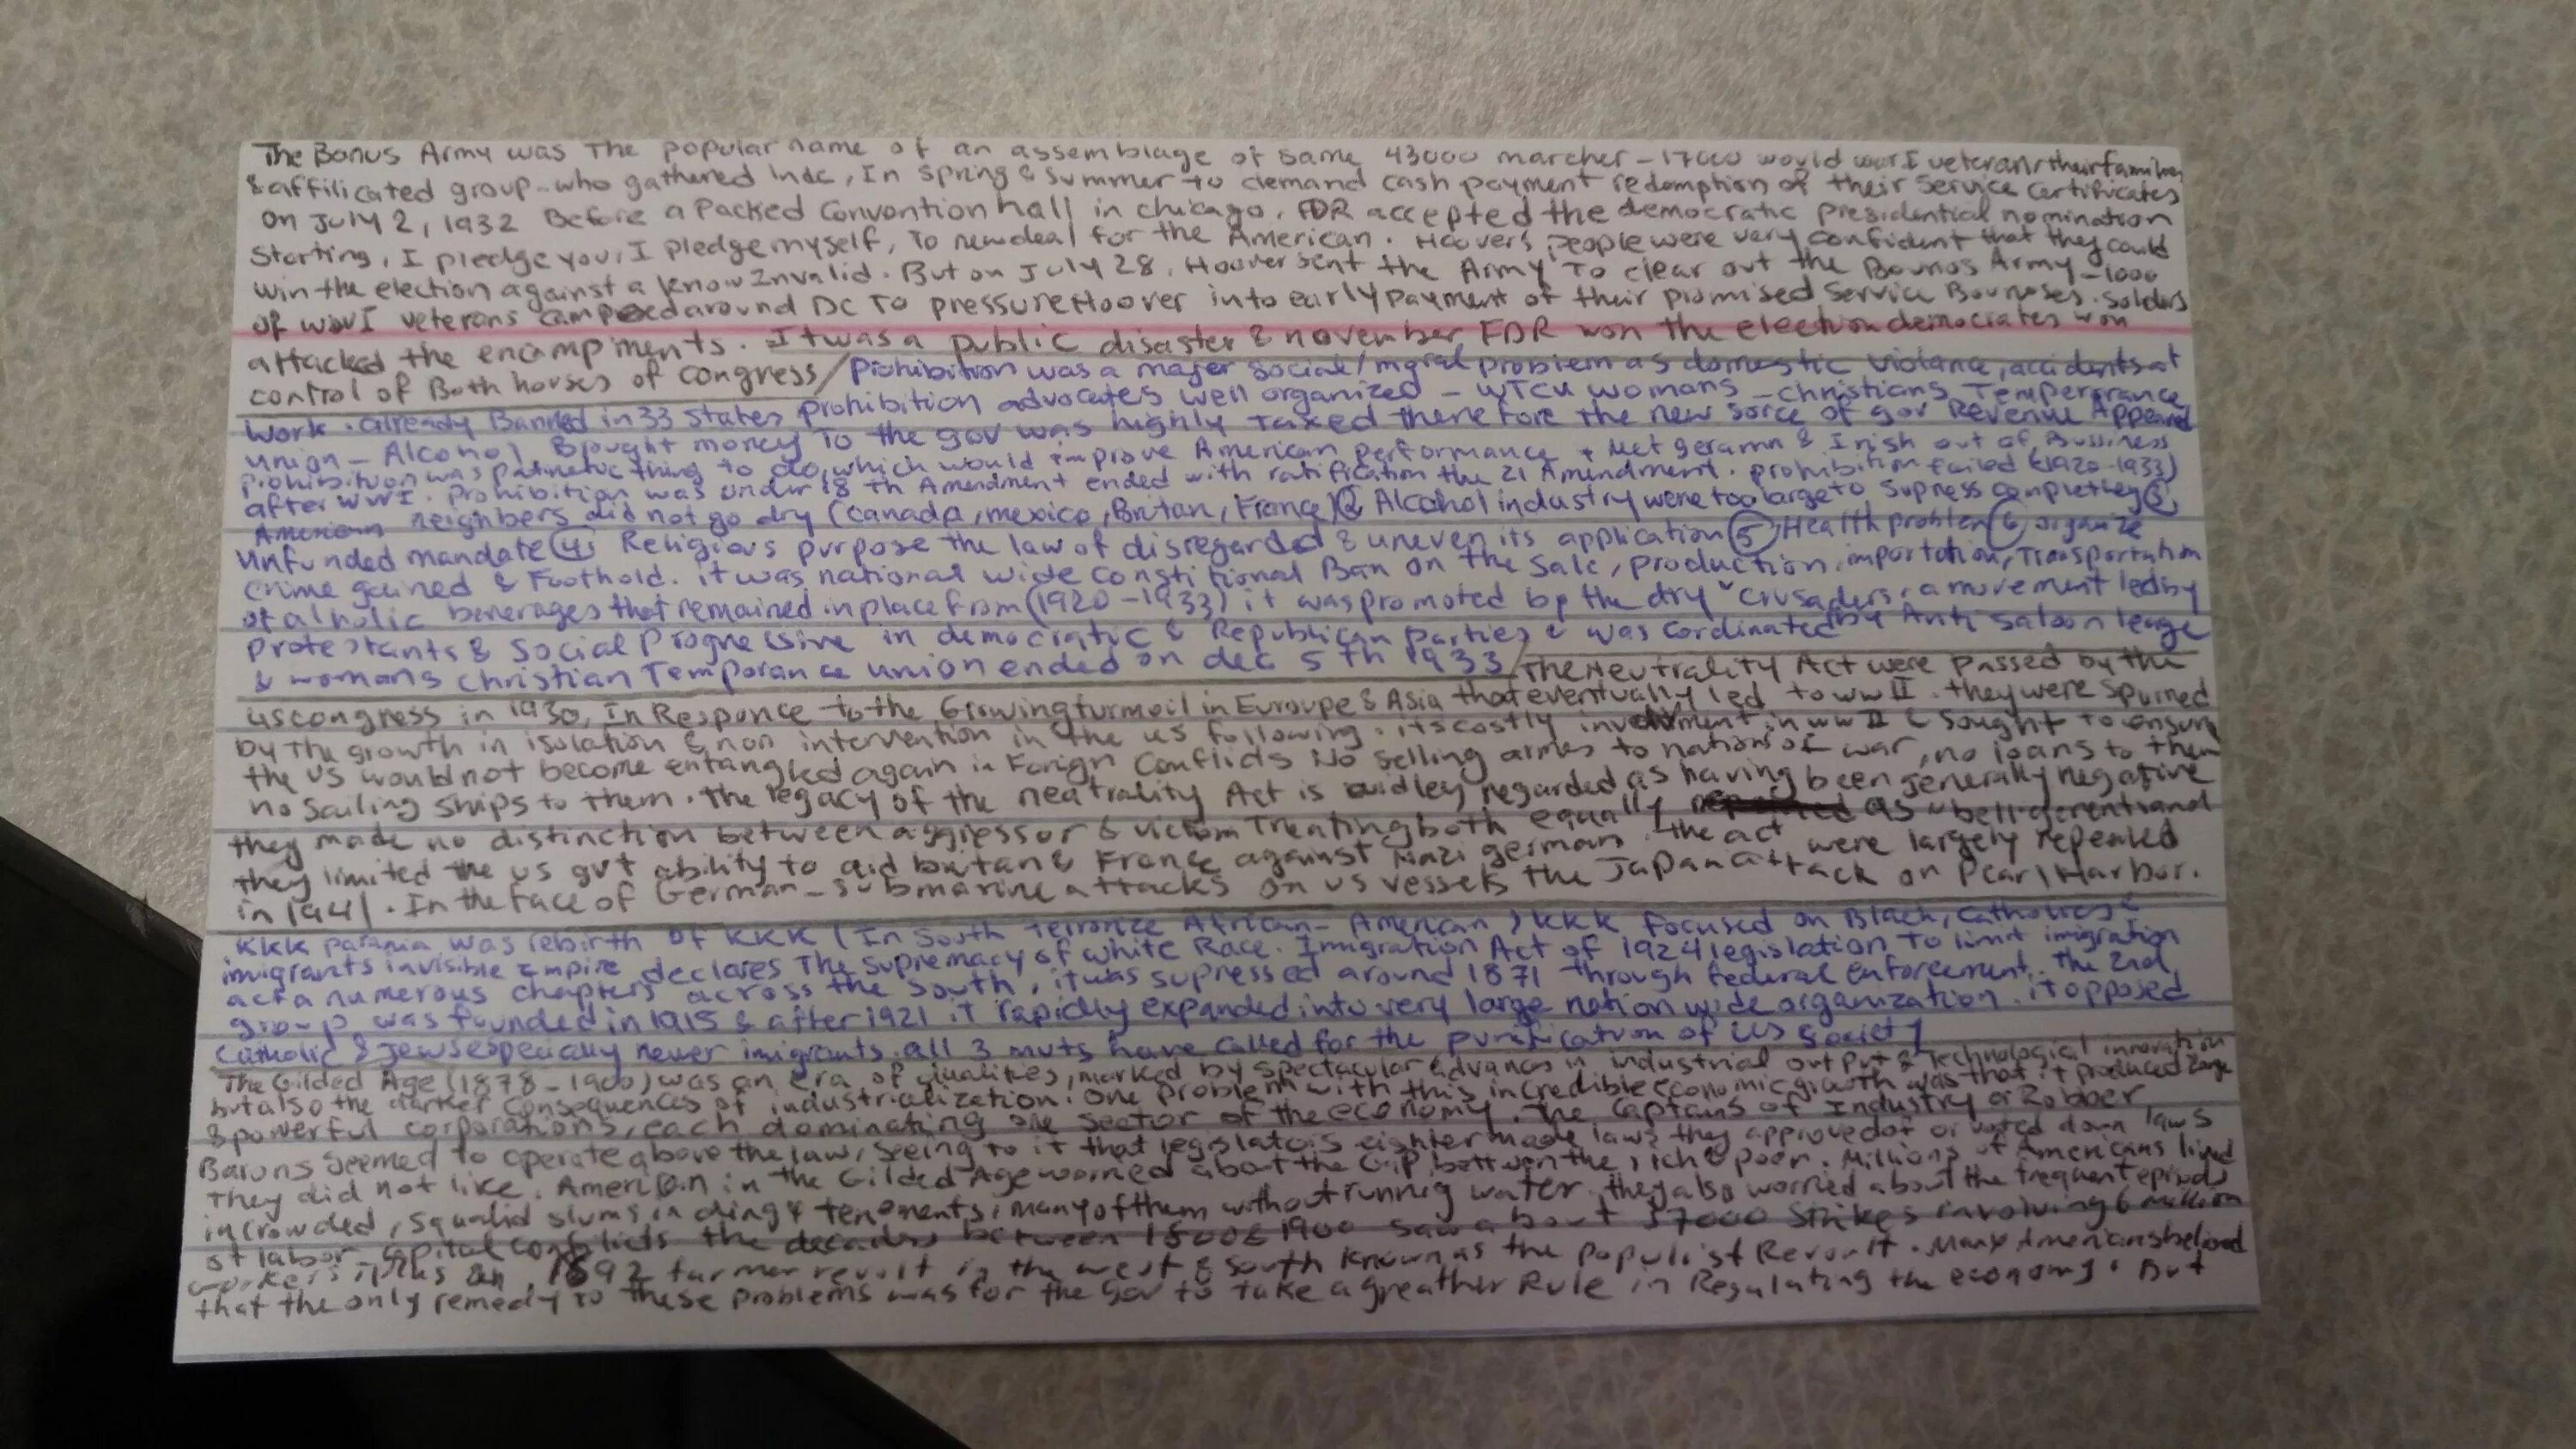 The Bonus Army was The popular name of an assemblage of same 43000 marcher - 17000 would war I veterans their families
& affilicated group - who gathered in dc, In spring & summer to demand cash payment redemption of their service certificates
on July 2, 1932 Before a Packed Convention hall in chicago, FDR accepted the democratic presidential nomination
Starting, I pledge you, I pledge myself, To new deal for the American. Hoovers people were very confident that they could
win the election against a know Invalid. But on July 28, Hoover sent the Army To clear out the Bounos Army - 1000
of wwI veterans camped around DC To pressure Hoover into early payment of their promised Service Bounoses. Solders
attacked the encampments. It was a public disaster & november FDR won the election democrates won
control of Both horses of congress / Prohibition was a majer social/moral problem as domestic violance, accidents at
work. already Banned in 33 states prohibition advocates well organized - WTCU womans - christians Temperrance
union - Alcohol Bought money To the gov was highly taxed therefore the new sorce of gov Revenue Appeard
prohibition was thing to do, which would improve American performance + Met geramn & Irish out of Bussiness
after WWI. Prohibition was under 18 Th Amendment ended with ratification the 21 Amendment. prohibition failed (1920-1933)
American neighbers did not go dry (canada, mexico, Britan, France) ② Alcohol industry were too large to supress completley ③
Unfunded mandate ④ Religious purpose the law of disregarded & uneven its application ⑤ Health problem ⑥ organize
crime gained & Foothold. it was national wide constitional Ban on the sale, production, importation, Transportation
of alholic beverages that remained in place from (1920-1933) it was promoted by the dry "crusaders, a movement led by
protestants & Social Progressive in democratic & Republican parties & was cordinated by Anti saloon leage
& womans christian Temporance union ended on dec 5 th 1933 / The Neutrality Act were passed by the
us congress in 1930, In Responce to the Growing turmoil in Euroupe & Asia that eventually led to ww II. they were spurned
by The growth in isolation & non intervention in the us following. its costly in ww II & sought to ensure
the US would not become entangled again in Forign Conflicts No selling armes to nations of war, no loans to them
no sailing ships to them. The legacy of the neatrality Act is widley regarded as having been jenerally negative
they made no distinction between aggressor & victom Treating both equally as "belligerents and
they limited the us gvt ability to aid britan & France against Nazi german. the act were largely repealed
in 1941. In the face of German - submarine attacks on us vessels the Japan attack on Pearl Harbor.
KKK was rebirth of KKK (In south terrorize African-American) KKK focused on Black, catholics &
imigrants invisible Empire declares The supremacy of white Race. Imigration Act of 1924 legislation To limit imigration
act a numerous chapters across the south, it was supressed around 1871 through federal enforcement. The 2nd
group was founded in 1915 & after 1921 it rapidly expanded into very large nation wide organization. it opposed
catholic & jews especially newer imigrants. all 3 muts have called for the purification of us society
The Gilded Age (1878-1900) was an era of dualities, marked by spectacular advances in industrial output & Technological innovation
but also the darker consequences of industrialization. one problem with this incredible economic growth was that it produced large
& powerful corporations, each dominating one sector of the economy. The captains of Industry or Robber
Barons seemed to operate above the law, seeing to it that legislators eighter made laws they approved of or voted down laws
They did not like. American in the Gilded Age worried about the Gap bettwen the rich & poor. Millions of Americans lived
in crowded, squalid slums in tenements, many of them without running water. they also worried about the frequent episods
of labor - capital conflicts the decades between 1800 & 1900 saw about 37000 strikes involving 6 million
workers 1892 farmer revolt in the west & south known as the populist Revorlt. Many Americans belived
that the only remedy to these problems was for the Gov to take a greather Rule in Regulating the economy. But